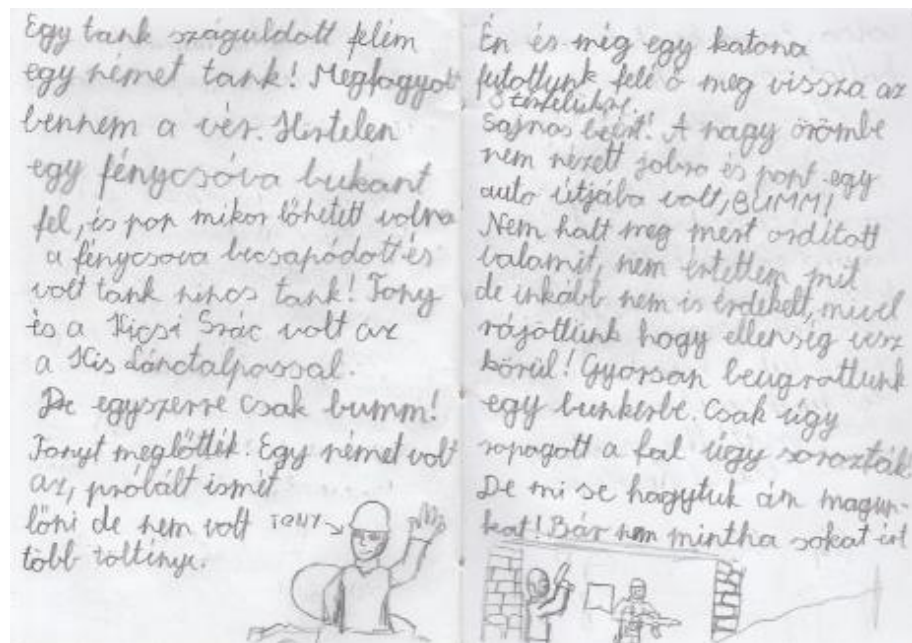 Egy tank száguldott felém
egy német tank! Megfagyot
bennem a vér. Hirtelen
egy fénycsóva bukant
fel, és pon mikor lőhetett volna
a fénycsova becsapódott és
volt tank nincs tank! Tony
és a Kicsi Szác volt az
a Kis Lánctalpassal.
De egyszerre csak bumm!
Tonyt meglőtték! Egy német volt
az, próbált ismét
lőni de nem volt
több tölténye.
TONY
Én és még egy katona
futottunk felé ő meg vissza az
ő terűletükre.
Sajnos beért! A nagy örömbe
nem nézett jobra és pont egy
auto útjába volt, BUMM!
Nem halt meg mert ordított
valamit, nem értettem mit
de inkább nem is érdekelt, mivel
rájöttünk hogy ellenség vesz
körül! Gyorsan beugrottunk
egy bunkerbe. Csak úgy
ropogott a fal úgy sorozták!
De mi se hagytuk ám magun-
kat! Bár nem mintha sokat ért